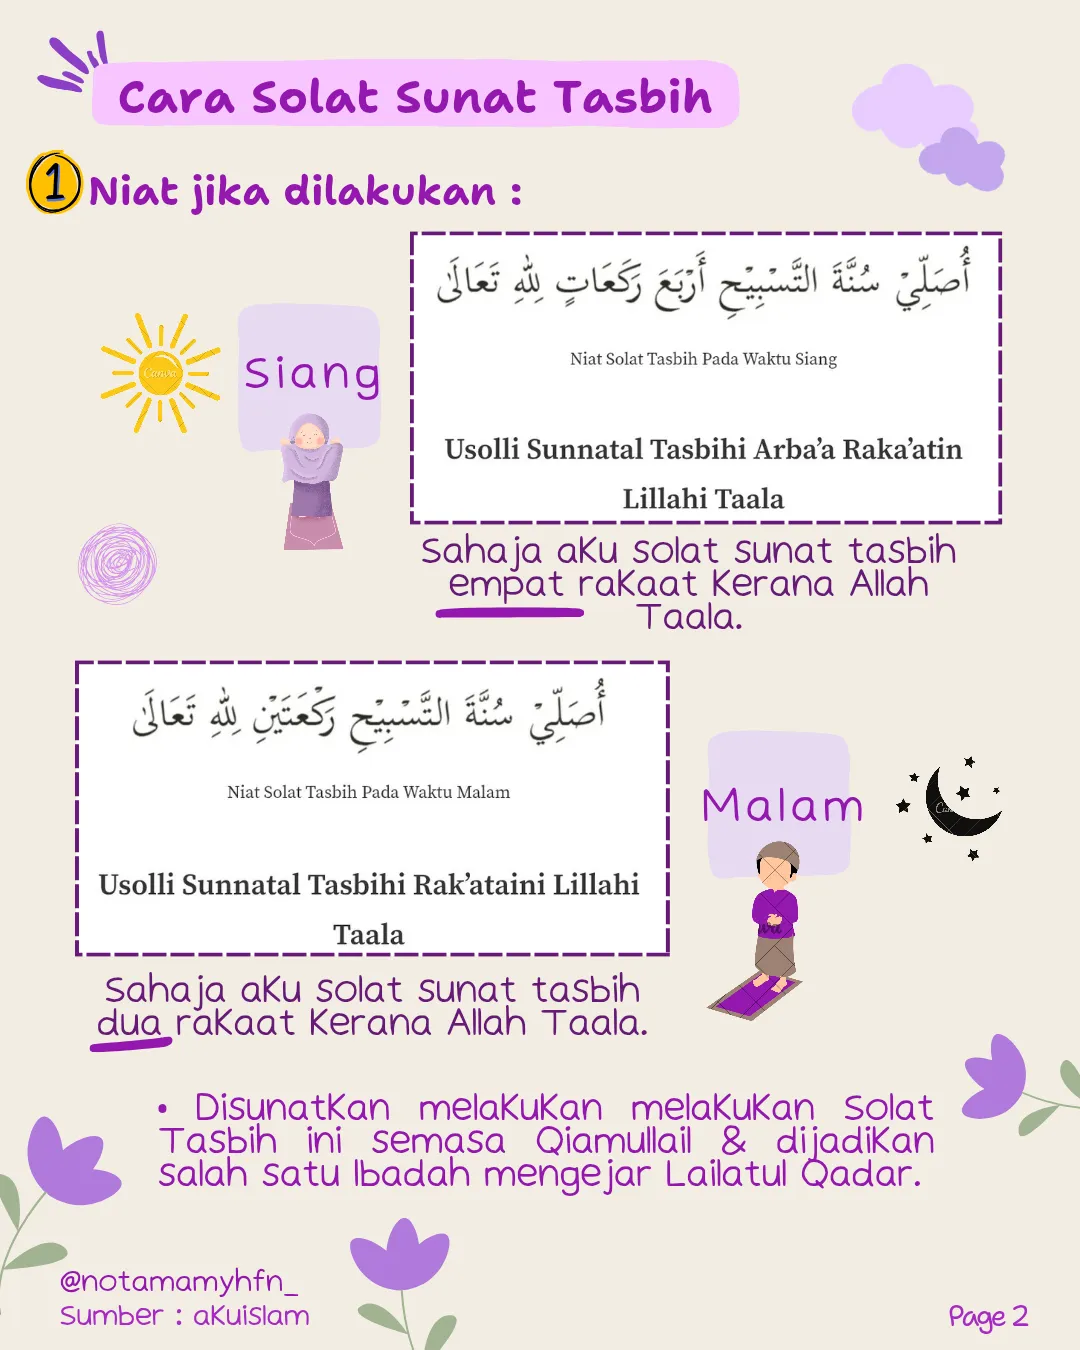 Cara Solat Sunat Tasbih
1 Niat jika dilakukan :
أُصَلِّيْ سُنَّةَ التَّسْبِيْحِ أَرْبَعَ رَكَعَاتٍ لِلّٰهِ تَعَالَىٰ
Niat Solat Tasbih Pada Waktu Siang
Usolli Sunnatal Tasbihi Arba’a Raka’atin
Lillahi Taala
Siang
Canva
Sahaja aku solat sunat tasbih
empat rakaat kerana Allah
Taala.
أُصَلِّيْ سُنَّةَ التَّسْبِيْحِ رَكْعَتَيْنِ لِلّٰهِ تَعَالَىٰ
Niat Solat Tasbih Pada Waktu Malam
Usolli Sunnatal Tasbihi Rak’ataini Lillahi
Taala
Malam
Sahaja aku solat sunat tasbih
dua rakaat kerana Allah Taala.
• Disunatkan melakukan melakukan Solat
Tasbih ini semasa Qiamullail & dijadikan
salah satu Ibadah mengejar Lailatul Qadar.
@notamamyhfn_
Sumber : akuislam
Page 2